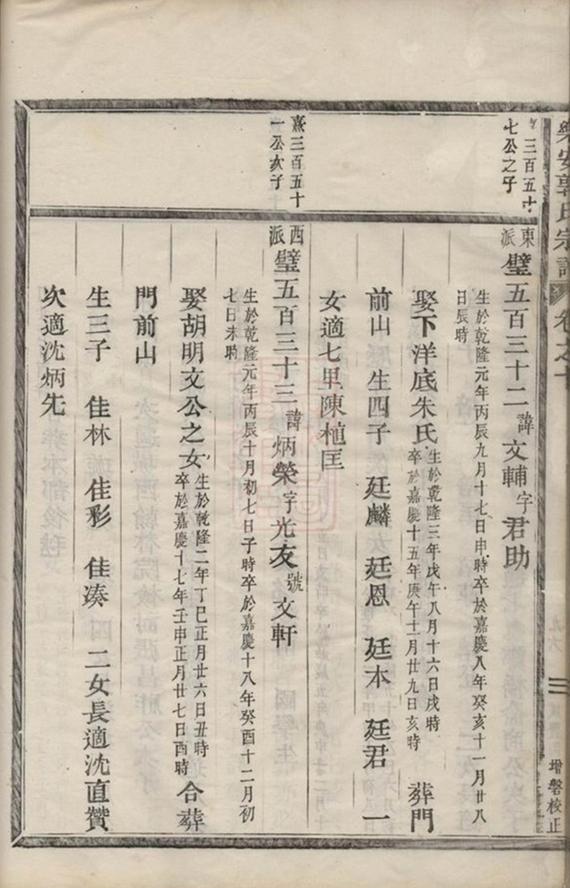 樂安郭氏宗譜 卷之十
增磐校正
三百五十
七公之子
東派 璧五百三十二 諱文輔 字君助
生於乾隆元年丙辰九月十七日申時卒於嘉慶八年癸亥十一月廿八
日辰時
娶下洋底朱氏 生於乾隆三年戊午八月十六日戌時 卒於嘉慶十五年庚午十一月廿九日亥時 葬門
前山 生四子 廷麟 廷恩 廷本 廷君 一
女適七里陳植匡
熹三百五十
一公次子
西派 璧五百三十三 諱炳榮 字光友 號文軒
生於乾隆元年丙辰十月初七日子時卒於嘉慶十八年癸酉十二月初
七日未時
娶胡明文公之女 生於乾隆二年丁巳正月廿六日丑時 卒於嘉慶十七年壬申正月廿七日酉時 合葬
門前山
生三子 佳林 佳彩 佳湊 二女長適沈直贊
次適沈炳先